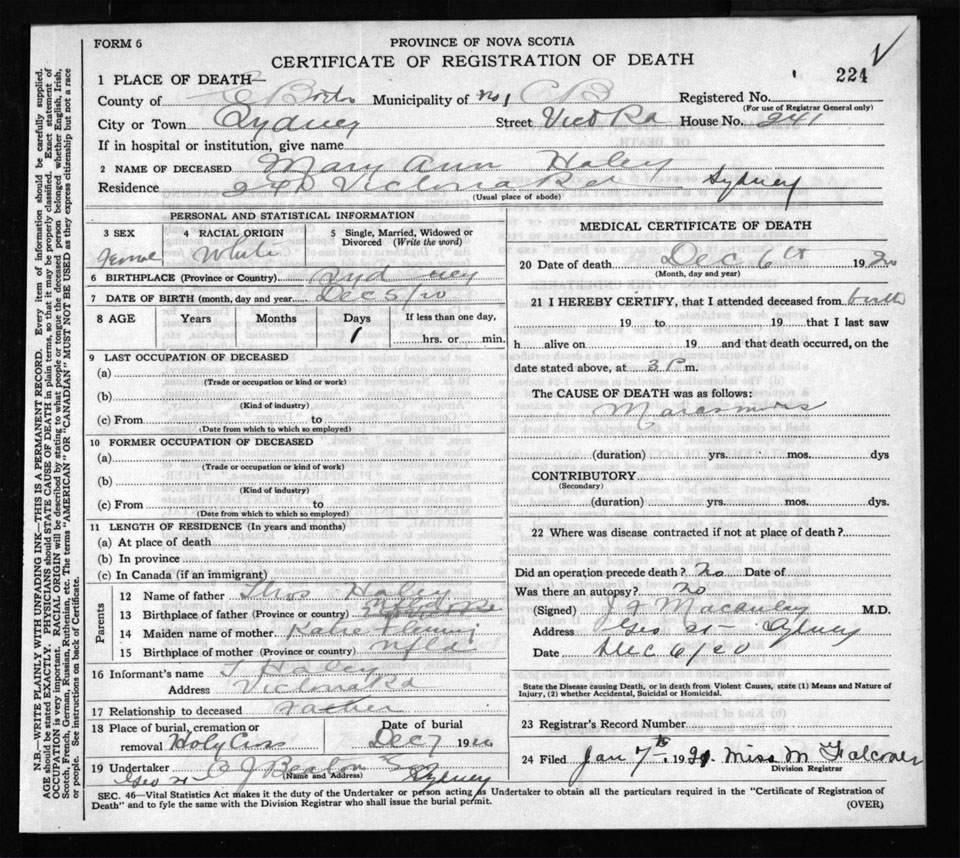 FORM 6
PROVINCE OF NOVA SCOTIA
CERTIFICATE OF REGISTRATION OF DEATH
224
1 PLACE OF DEATH—
County of Municipality of No 1 C B Registered No.
(For use of Registrar General only)
City or Town Sydney Street Vict Rd House No. 241
If in hospital or institution, give name
2 NAME OF DECEASED Mary Ann Haley
Residence Victoria Rd Sydney
(Usual place of abode)
PERSONAL AND STATISTICAL INFORMATION
3 SEX 4 RACIAL ORIGIN 5 Single, Married, Widowed or
Divorced (Write the word)
White
6 BIRTHPLACE (Province or Country) Sydney
7 DATE OF BIRTH (month, day and year) Dec 5/20
8 AGE Years Months Days If less than one day,
1 hrs. or min.
9 LAST OCCUPATION OF DECEASED
(a)
(Trade or occupation or kind or work)
(b)
(Kind of industry)
(c) From to
(Date from which to which so employed)
10 FORMER OCCUPATION OF DECEASED
(a)
(Trade or occupation or kind of work)
(b)
(Kind of industry)
(c) From to
(Date from which to which so employed)
11 LENGTH OF RESIDENCE (In years and months)
(a) At place of death
(b) In province
(c) In Canada (if an immigrant)
Parents
12 Name of father Thos Haley
13 Birthplace of father (Province or country)
14 Maiden name of mother Katie Fleming
15 Birthplace of mother (Province or country) Nfld
16 Informant's name T Haley
Address Victoria Rd
17 Relationship to deceased father
18 Place of burial, cremation or Date of burial
removal Holy Cross Dec 7 1920
19 Undertaker A J Beaton Son
(Name and Address)
Geo St Sydney
MEDICAL CERTIFICATE OF DEATH
20 Date of death Dec 6th 1920
(Month, day and year)
21 I HEREBY CERTIFY, that I attended deceased from birth
19 to 19 that I last saw
h alive on 19 and that death occurred, on the
date stated above, at 3 P m.
The CAUSE OF DEATH was as follows:
Marasmus
(duration) yrs. mos. dys
CONTRIBUTORY
(Secondary)
(duration) yrs. mos. dys.
22 Where was disease contracted if not at place of death?
Did an operation precede death? No Date of
Was there an autopsy? No
(Signed) Macauley M.D.
Address Geo St Sydney
Date Dec 6/20
State the Disease causing Death, or in death from Violent Causes, state (1) Means and Nature of
Injury, (2) whether Accidental, Suicidal or Homicidal.
23 Registrar's Record Number
24 Filed Jan 7th 1921 Miss M Falconer
Division Registrar
SEC. 46—Vital Statistics Act makes it the duty of the Undertaker or person acting as Undertaker to obtain all the particulars required in the "Certificate of Registration of
Death" and to fyle the same with the Division Registrar who shall issue the burial permit.
(OVER)
N.B.—WRITE PLAINLY WITH UNFADING INK—THIS IS A PERMANENT RECORD. Every item of information should be carefully supplied.
AGE should be stated EXACTLY. PHYSICIANS should STATE CAUSE OF DEATH in plain terms, so that it may be properly classified. Exact statement of
OCCUPATION is very important. RACIAL ORIGIN will be described by stating to what people or tongue the deceased person belonged whether English, Irish,
Scotch, French, German, Russian, Ruthenian, etc. The terms "AMERICAN" OR "CANADIAN" MUST NOT BE USED as they express citizenship but not a race
or people. See instructions on back of Certificate.